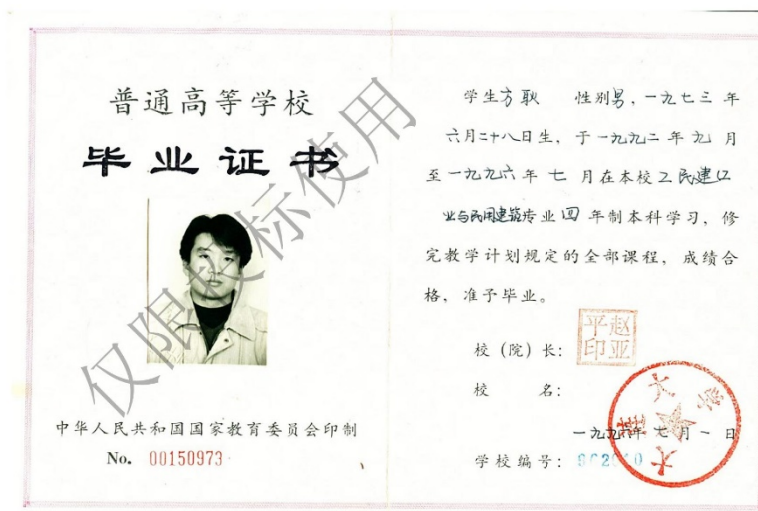 普通高等学校
毕业证书
仅限投标使用
中华人民共和国国家教育委员会印制
No. 00150973
学生方耿 性别男,一九七三年
六月二十八日生,于一九九二年九月
至一九九六年七月在本校工民建
业与民用建筑专业四年制本科学习,修
完教学计划规定的全部课程,成绩合
格,准予毕业。
校(院)长:
赵亚平印
校 名:
大学
一九九六年七月一日
学校编号: